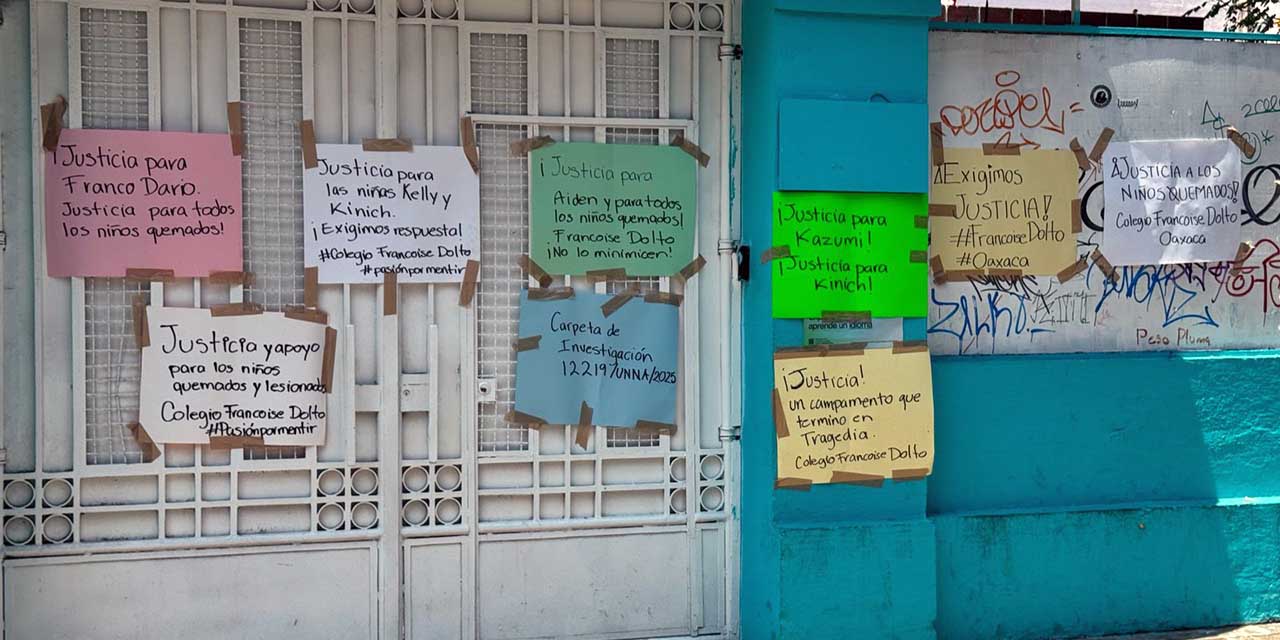 ¡Justicia para
Franco Darío.
Justicia para todos
los niños quemados!
Justicia para
las niñas Kelly y
Kinich.
¡Exigimos respuesta!
#Colegio Francoise Dolto
#pasiónpormentir
¡Justicia para
Aiden y para todos
los niños quemados!
Francoise Dolto
¡No lo minimicen!
Justicia y apoyo
para los niños
quemados y lesionados
Colegio Francoise Dolto
#Pasiónpormentir
Carpeta de
Investigación
12219/UNNA/2025
¡Justicia para
Kazumi!
¡Justicia para
Kinich!
aprende un idioma
¡Justicia!
un campamento que
termino en
Tragedia.
Colegio Francoise Dolto
¡Exigimos
JUSTICIA!
#Francoise Dolto
#Oaxaca
¡JUSTICIA A LOS
NIÑOS QUEMADOS!
Colegio Francoise Dolto
Oaxaca
Peso Pluma